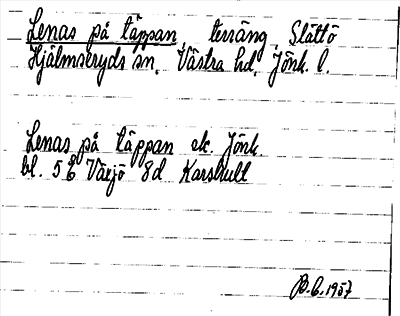 Lenas på täppan, terräng, Slättö
Hjälmseryds sn, Västra hd, Jönk. l.
Lenas på täppan ek. Jönk.
bl. 5 E Växjö 8d Karshult
B.C. 1957